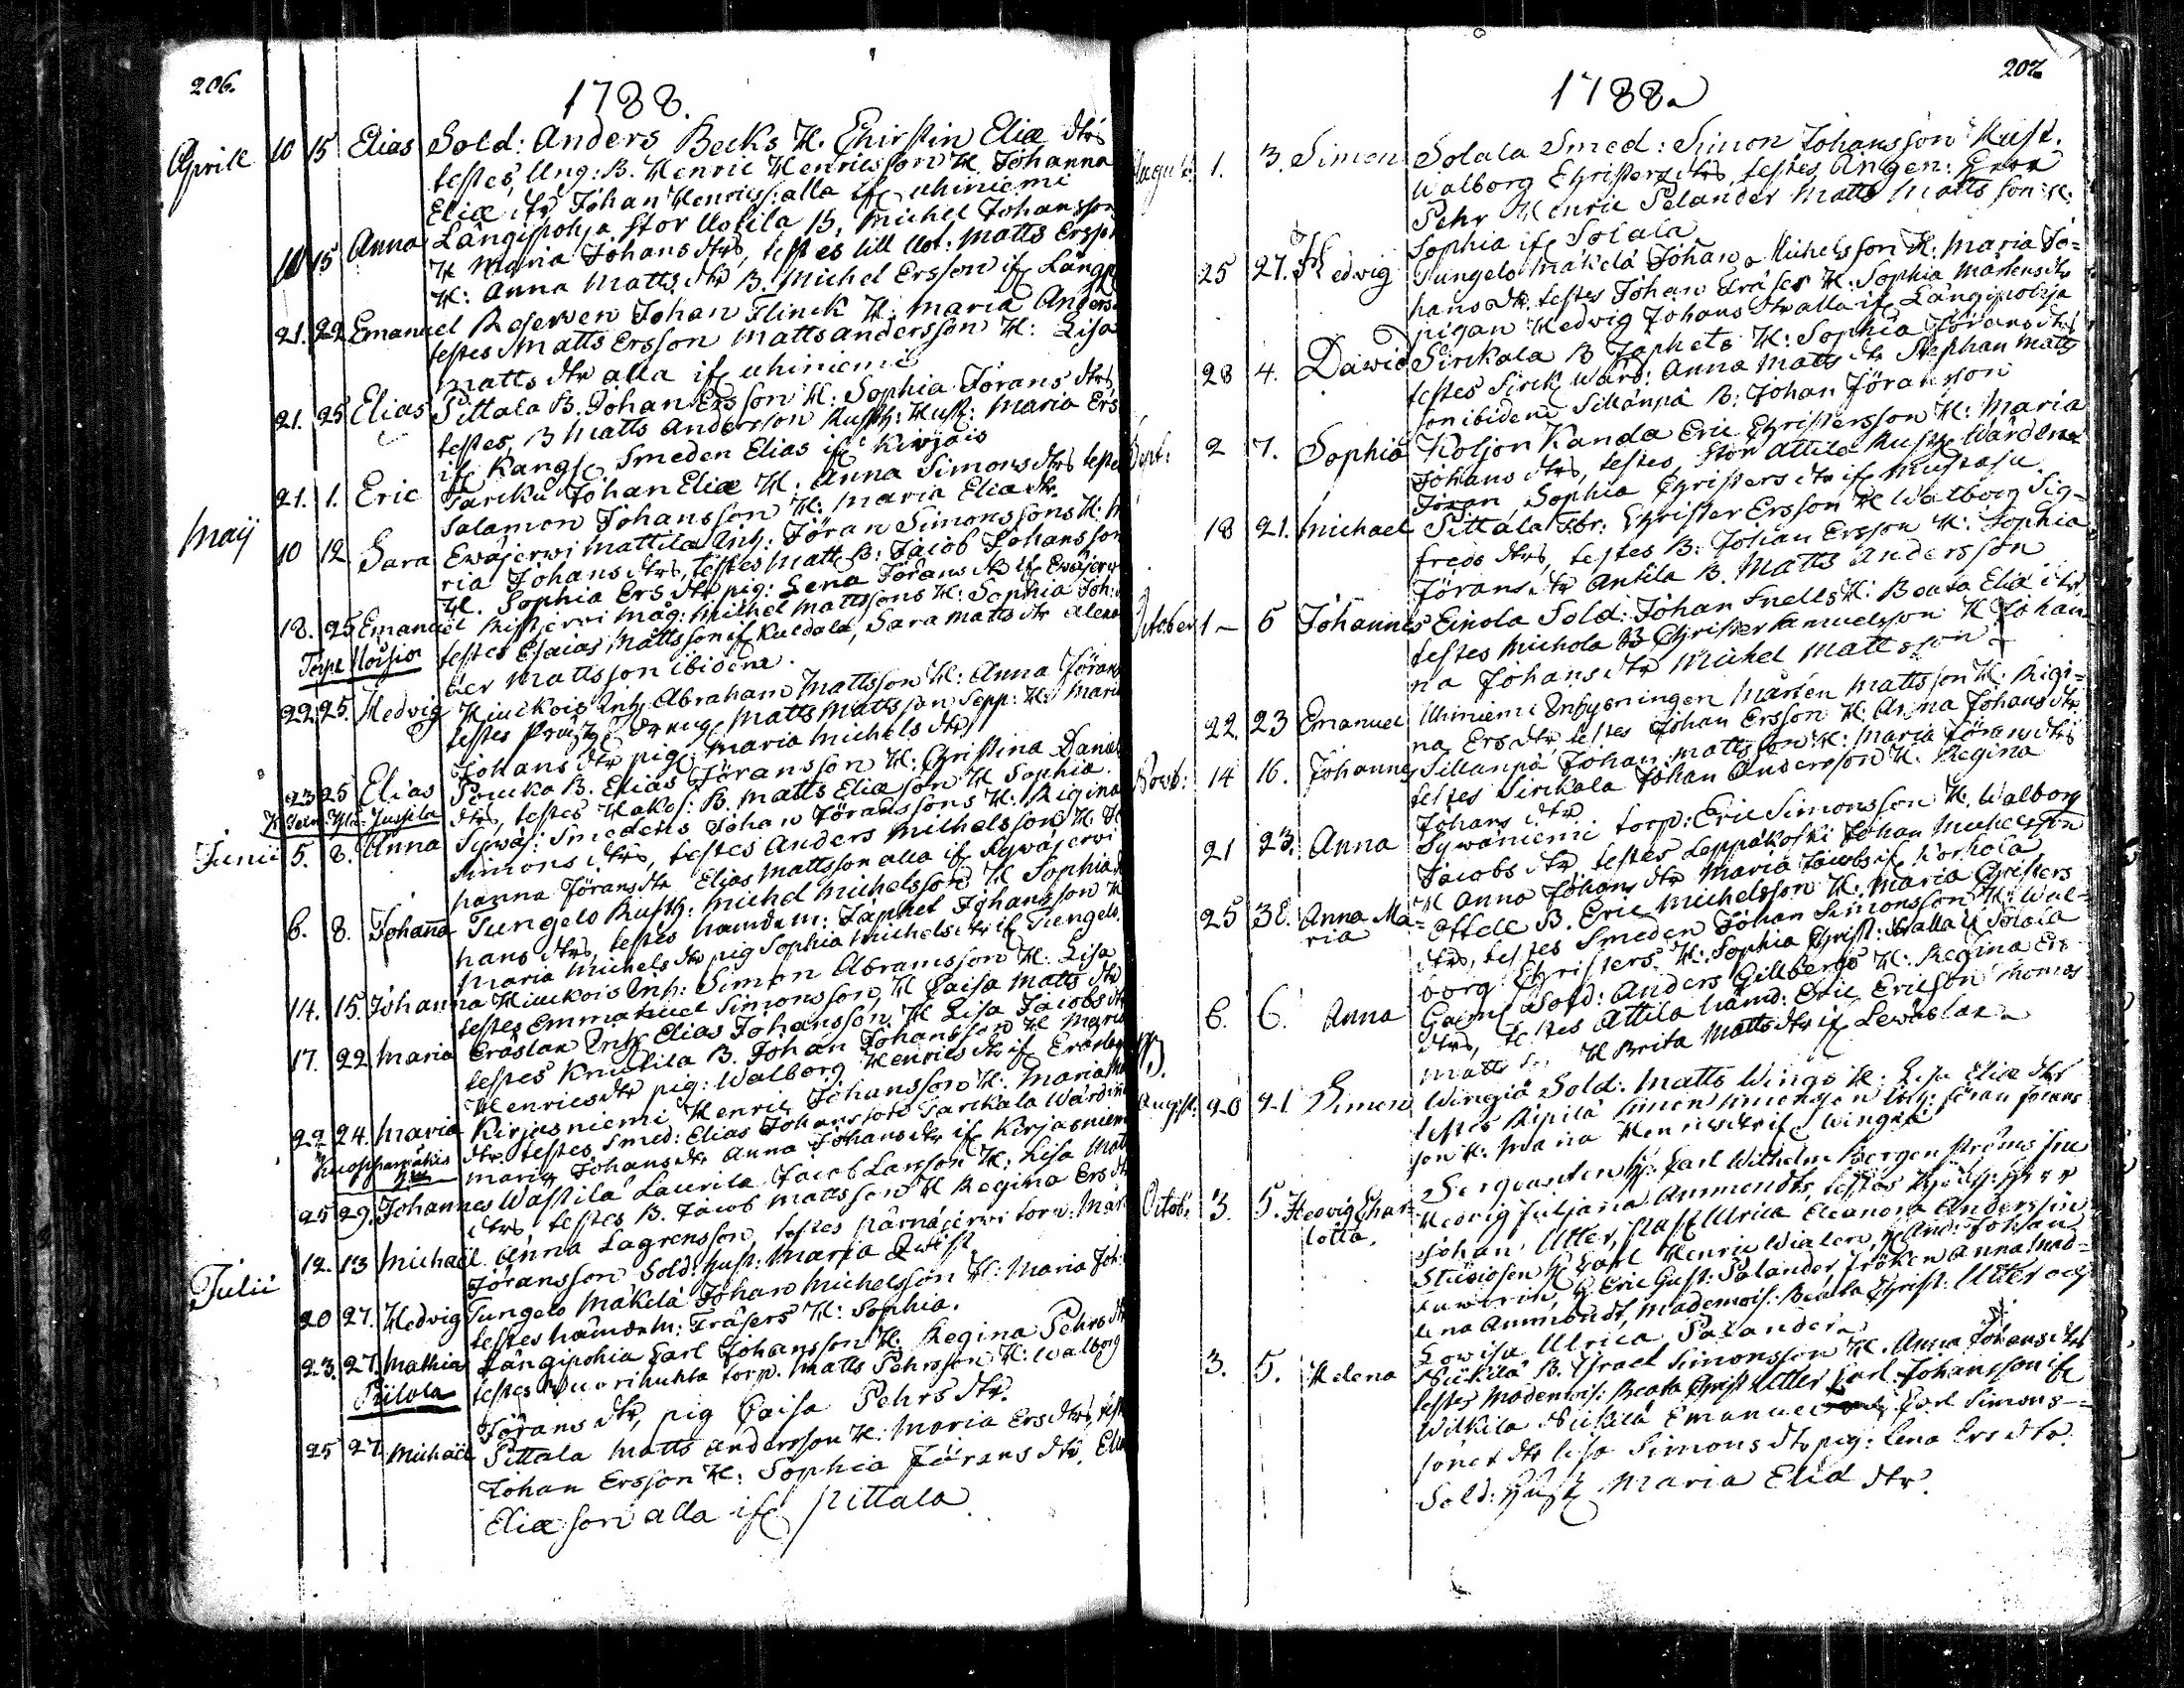 206.
1788.
Aprill 10 15 Elias Sold: Anders Becks H. Chirstin Eliæ dtrs
testes, Ung: B. Henric Henricsson H. Johanna
Eliæ dtr Johan Henricss: alla if uhiniemi
10 15 Anna Långipohja Stor Uotila B, Michel Johansson
H Maria Johans dtrs, testes lill Uot: Matts Ersson
H: Anna Matts dtr B. Michel Ersson if Långp
21. 22 Emanuel Reserven Johan Flinck H: Maria Anders
testes Matts Ersson Matts andersson H: Lisa
Matts dtr alla if uhiniemi
21. 25 Elias Pittala B. Johan Ersson H: Sophia Jörans dtrs
testes, B Matts Andersson Rusth: Hust: Maria Ers
if Kangs Smeden Elias if Kirjais
21. 1. Eric Tarcku Johan Eliæ H. Anna Simons dtrs testes
Salamon Johansson H: Maria Eliæ dtr.
Maij 10 12 Sara Ewäjerwi Mattila Inh: Jöran Simonssons H: M
ria Johans dtrs, testes Matt B: Jacob Johansson
H. Sophia Ers dtr pig: Lena Jörans dtr if Ewäjerw
18. 25 Emanuel Ristjerwi Måg: Michel Mattssons H: Sophia Joh:
testes Esaias Mattsson if Kuldala, Sara Matts dtr Alexan
der Mattsson ibidem.
22. 25. Hedvig Hiuckois Inh Abraham Mattsson H: Anna Jörans
testes Präst: dräng Matts Mattsson Sepp: H: Maria
Johans dtr pig: Maria Michels dtr
23 25 Elias Poucka B. Elias Jöransson H: Christina Daniels
dtr, testes Hakos: B. Matts Eliæson H Sophia
Junii 5. 8. Anna Sywäj: Smedens Johan Jöranssons H: Rigina
Simons dtrs, testes Anders Michelsson H Jo
hanna Jörans dtr Elias Mattsson alla if Sywäjerwi
6. 8. Johana Tungelo Rusth: Michel Michelsson H Sophia Jo
hans dtrs, testes nämdem: Japhet Johansson H
Maria Michels dtr pig Sophia Michels dtr if Tungelo
14. 15. Johanna Hiuckois Inh: Simon Abramsson H: Lisa
testes Emmanuel Simonsson, H Caisa Matts dtr
17. 22 Maria Eräslax Inh Elias Johansson H Lisa Jacobs dtr
testes Knutila B. Johan Johansson H Maria
Henrics dtr pig: Walborg Henrics dtr if Eräslax
22 24. Maria Kirjasniemi Henric Johansson H: Maria
dtr. testes Smed: Elias Johansson Tarckala Wärdin
Maria Johans dtr Anna Johans dtr if Kirjasniem
25 29. Johannes Wastila Laurila Jacob Larsson H: Lisa Matts
dtrs, testes B. Jacob Mattsson H Regina Ers dtr
Julii 12. 13 Michael Anna Lagrensson, testes Kärnäjerwi torp: Mårt
Jöransson Sold: hust: Maria Qwist
20 27. Hedvig Tungelo Mäkelä Johan Michelsson H: Maria Joh:
testes nämdem: Träsers H: Sophia.
23. 27. Mathias Långipohia Carl Johansson H. Regina Pehrs dtr
testes Wuorihuhta torp. Matts Pehrsson H: Walborg
Jörans dtr, pig Caisa Pehrs dtr.
25 27 Michaël Pittala Matts andersson H: Maria Ers dtrs, test
Johan Ersson H: Sophia Jörans dtr. Elias
Eliæ son alla if Pittala
207.
1788.
August: 1. 3. Simon Solala Smed: Simon Johansson Hust.
Walborg Christers dtrs, testes
Pehr Henric Pelander Matts Matts son H:
Sophia if Solala
25 27. Hedwig Tungelo Mäkelä Johan Michelsson H: Maria Jo=
hans dtr. testes Johan Träser H. Sophia Mårtens dtr
pigan Hedwig Johans dtr alla if Långipohja
28 4. Dawid Sirckala B Japhets H: Sophia Jörans dtrs
testes Sirck Wärd: Anna Matts dtr Stephan Matts
son ibidem Sillanpä B: Johan Jöransson
Sept: 2 7. Sophia Koljon Kanda Eric Christersson H: Maria
Johans dtrs, testes, Stor Attila Rusth Wärden
Jöran, Sophia Christers dtr if Mustasu
18 21. Michael Pittala Sbr: Christer Ersson H Walborg Sig=
freds dtrs, testes B: Johan Ersson H: Sophia
Jörans dtr Antila B. Matts Andersson
October 1 — 5 Johannes Einola Sold: Johan Snells H: Beata Eliæ dtr
testes Michola B Christer Samuelsson H Johan
na Johans dtr Michel Mattsson
22. 23 Emanuel Uhiniemi Inbyssingen Mårten Mattsson H: Rigi=
na Ers dtr testes Johan Ersson H: Anna Johans dtr
Novb: 14 16. Johannes Sillanpä Johan Mattsson H: Maria Jörans dtrs
testes Sirckala Johan Andersson H. Regina
Johans dtr
21 23. Anna Sywäniemi torp: Eric Simonsson H. Walborg
Jacobs dtr testes Leppäkoski Johan Michelsson
H Anna Johans dtr Maria Jacobs if Korhola
25 30. Anna Ma= Ottell B. Eric Michelsson H: Maria Christers
ria dtrs, testes Smeden Johan Simonsson H: Wal=
borg Christers H: Sophia Christ: dtr alla if Solala
6. 6. Anna Sold: Anders Gillbergs H: Regina Ers
dtrs, testes Attila nämd: Eric Ericsson Thomas
Matts H Brita Matts dtr if Lewäslax
August: 20 21 Simon Wingiä Sold: Matts Wings H. Lisa Eliæ dtr
testes Ripilä Simon Simonsson Jöran Jörans
son H: Maria Henrics dtr if Wingiä
Sergeanten H: Carl Wilhelm Bergenströms fru
Octob: 3. 5. Hedvig Char= Hedvig Juliana Ammondts, testes
lotta. Johan Utter, Ulrica Eleanora Anderssin
Studiosen H Carl Henric Wialen,
H Eric Gust: Palander Fröken Anna Mad=
lena Ammondt, Mademois: Beata Christ: Utter och
Lowisa Ulrica Palander
3. 5. Helena Nickilä B. Israel Simonsson H. Anna Johans dtr
testes Mademois: Beata Christ Utter Carl Johansson if
Wilkila Nickilä Emanuel Carl Simons=
sons dtr Lisa Simons dtr pig: Lena Ers dtr.
Sold: Hust Maria Eliæ dtr.